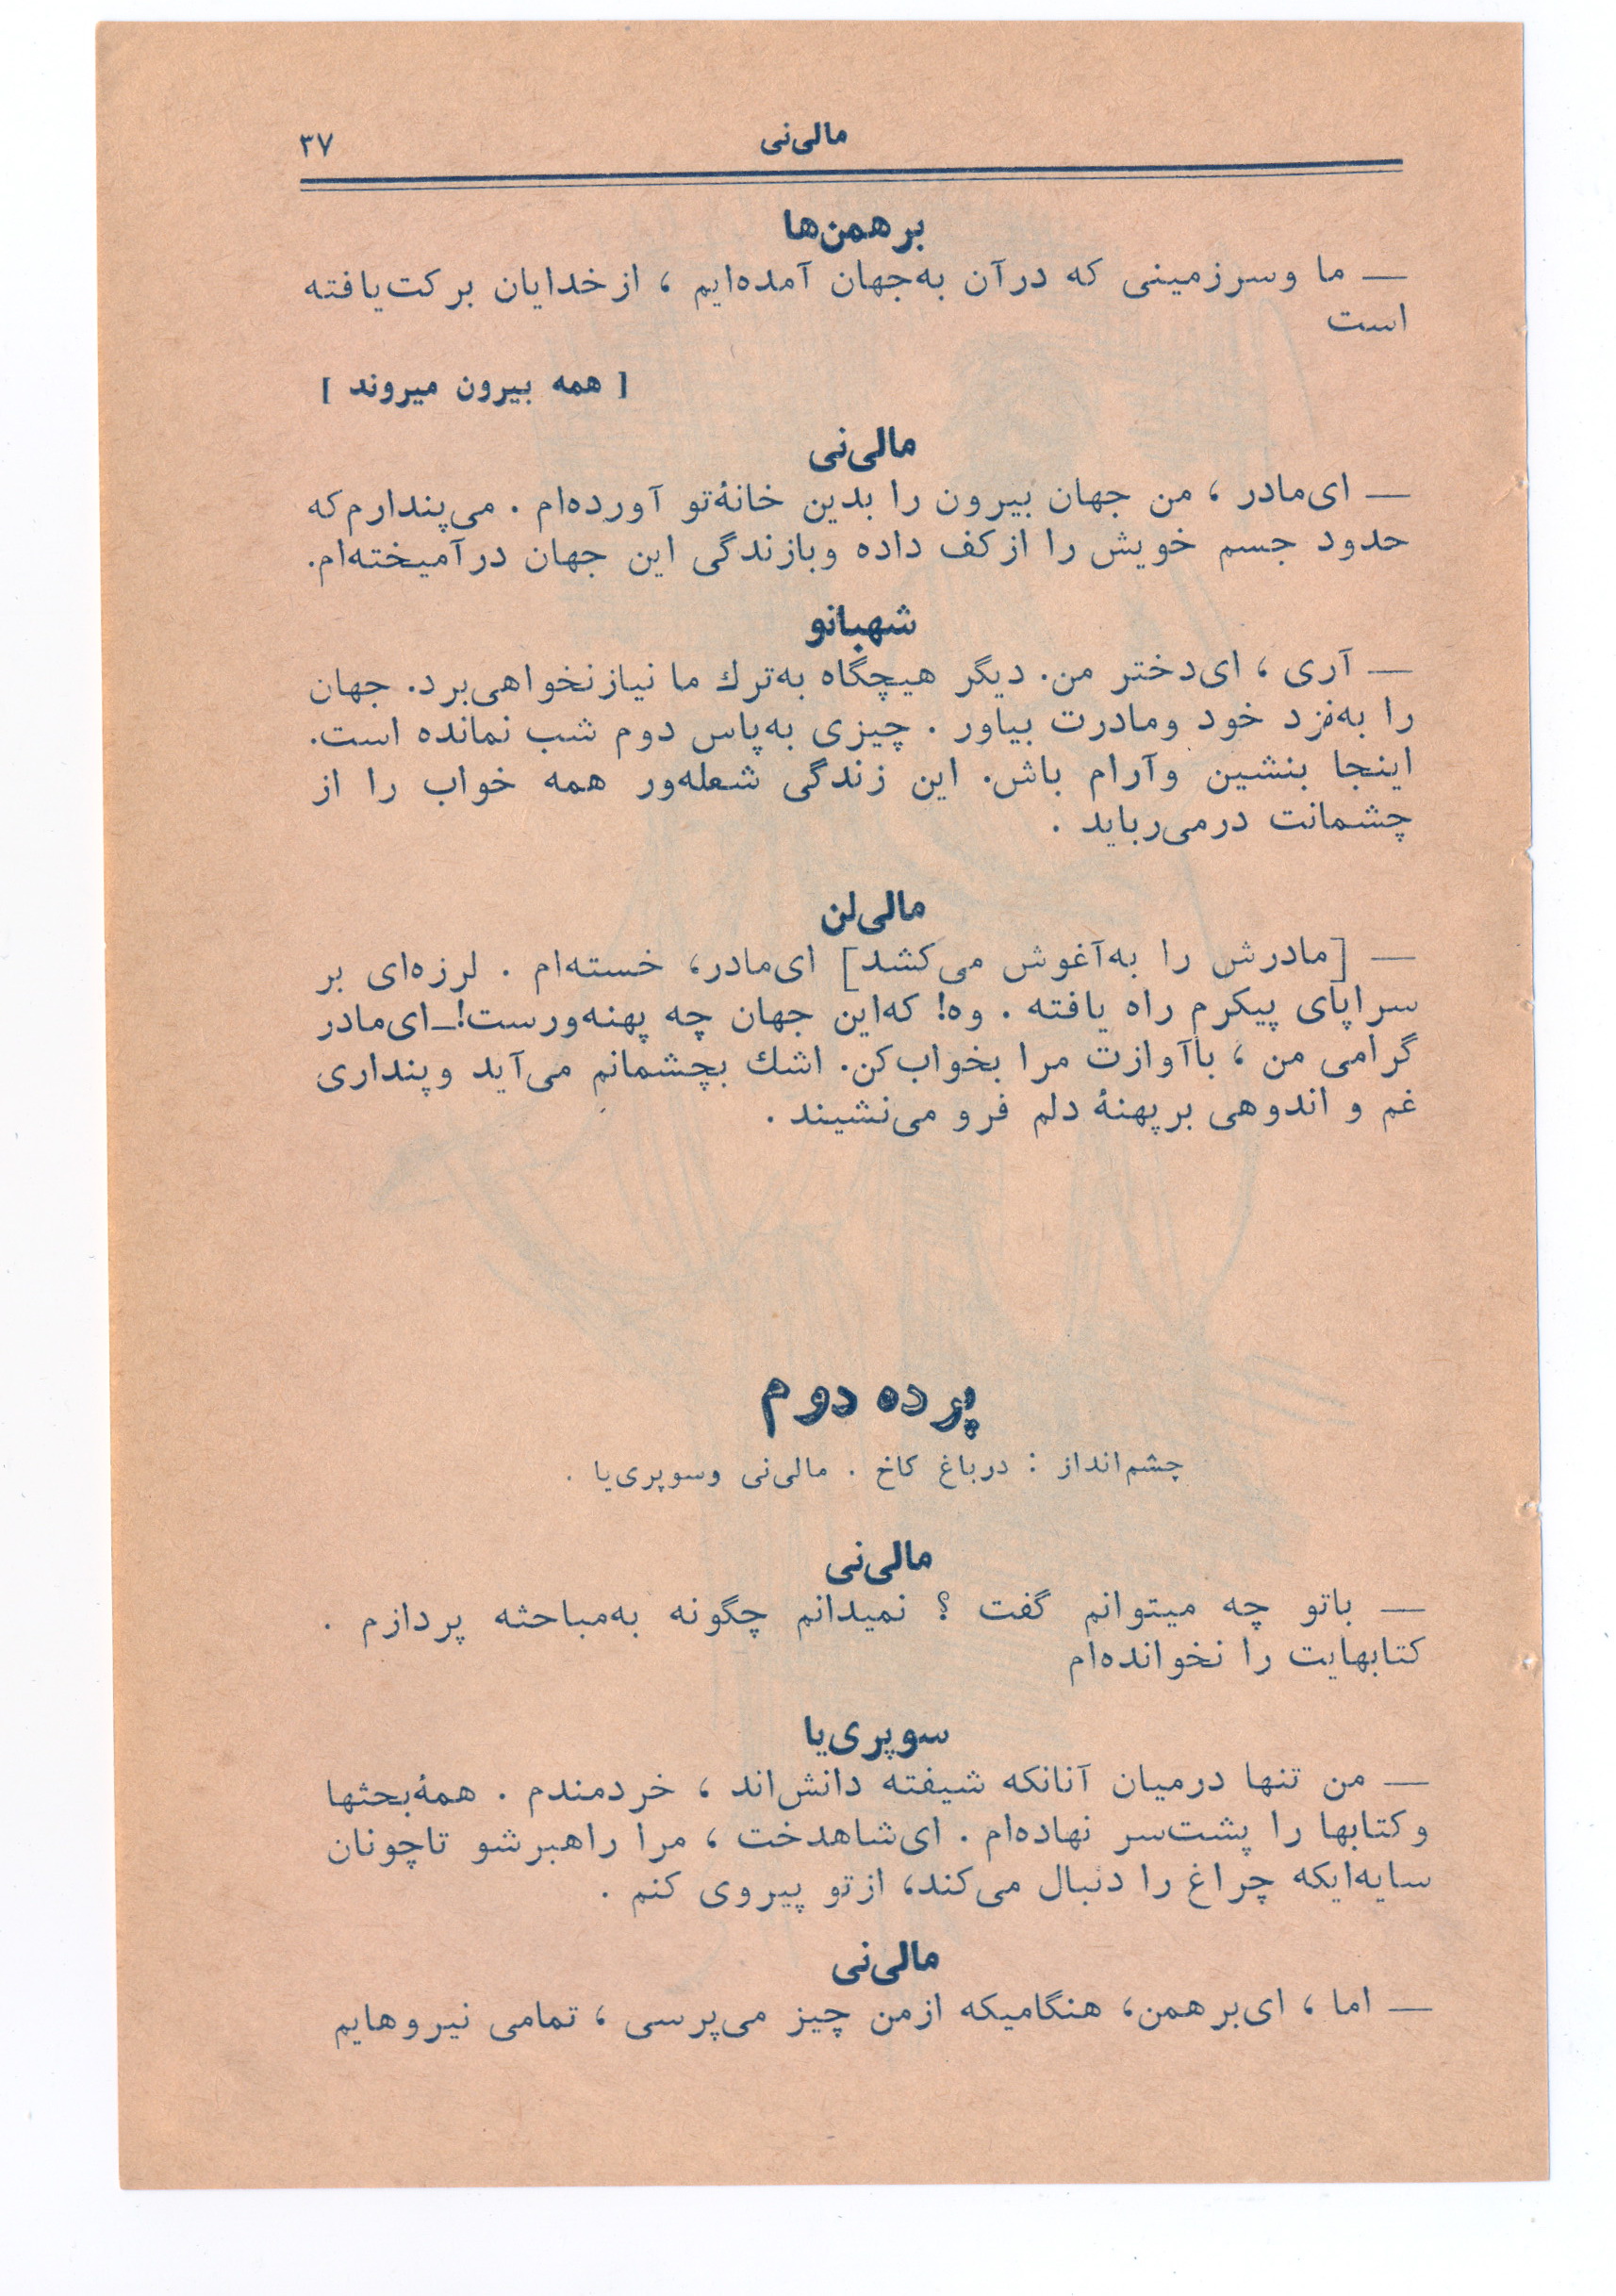 مالی‌نی ۳۷
برهمن‌ها
— ما وسرزمینی که درآن به‌جهان آمده‌ایم ، ازخدایان برکت‌یافته
است
[ همه بیرون میروند ]
مالی‌نی
— ای‌مادر ، من جهان بیرون را بدین خانهٔ‌تو آورده‌ام . می‌پندارم‌که
حدود جسم خویش را ازکف داده وبازندگی این جهان درآمیخته‌ام.
شهبانو
— آری ، ای‌دختر من. دیگر هیچگاه به‌ترك ما نیازنخواهی‌برد. جهان
را به‌نزد خود ومادرت بیاور . چیزی به‌پاس دوم شب نمانده است.
اینجا بنشین وآرام باش. این زندگی شعله‌ور همه خواب را از
چشمانت درمی‌رباید .
مالی‌لن
— [مادرش را به‌آغوش می‌کشد] ای‌مادر، خسته‌ام . لرزه‌ای بر
سراپای پیکرم راه یافته . وه! که‌این جهان چه پهنه‌ورست!—ای‌مادر
گرامی من ، باآوازت مرا بخواب‌کن. اشك بچشمانم می‌آید وپنداری
غم و اندوهی برپهنهٔ دلم فرو می‌نشیند .
پرده دوم
چشم‌انداز : درباغ کاخ . مالی‌نی وسوپری‌یا .
مالی‌نی
— باتو چه میتوانم گفت ؟ نمیدانم چگونه به‌مباحثه پردازم .
کتابهایت را نخوانده‌ام
سوپری‌یا
— من تنها درمیان آنانکه شیفته دانش‌اند ، خردمندم . همهٔ‌بحثها
وکتابها را پشت‌سر نهاده‌ام . ای‌شاهدخت ، مرا راهبرشو تاچونان
سایه‌ایکه چراغ را دنبال می‌کند، ازتو پیروی کنم .
مالی‌نی
— اما ، ای‌برهمن، هنگامیکه ازمن چیز می‌پرسی ، تمامی نیروهایم